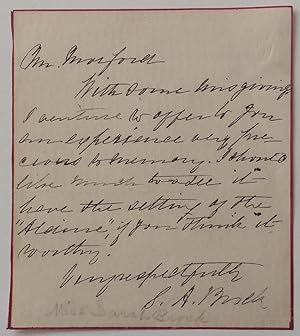 Mr. Morford
With some misgivings
I venture to offer to you
an experience very pre-
cious to memory. I should
like much to see it
have the setting of the
"Aldine," if you think it
worthy.
Very respectfully
S. A. Brock
Miss Sarah Brock